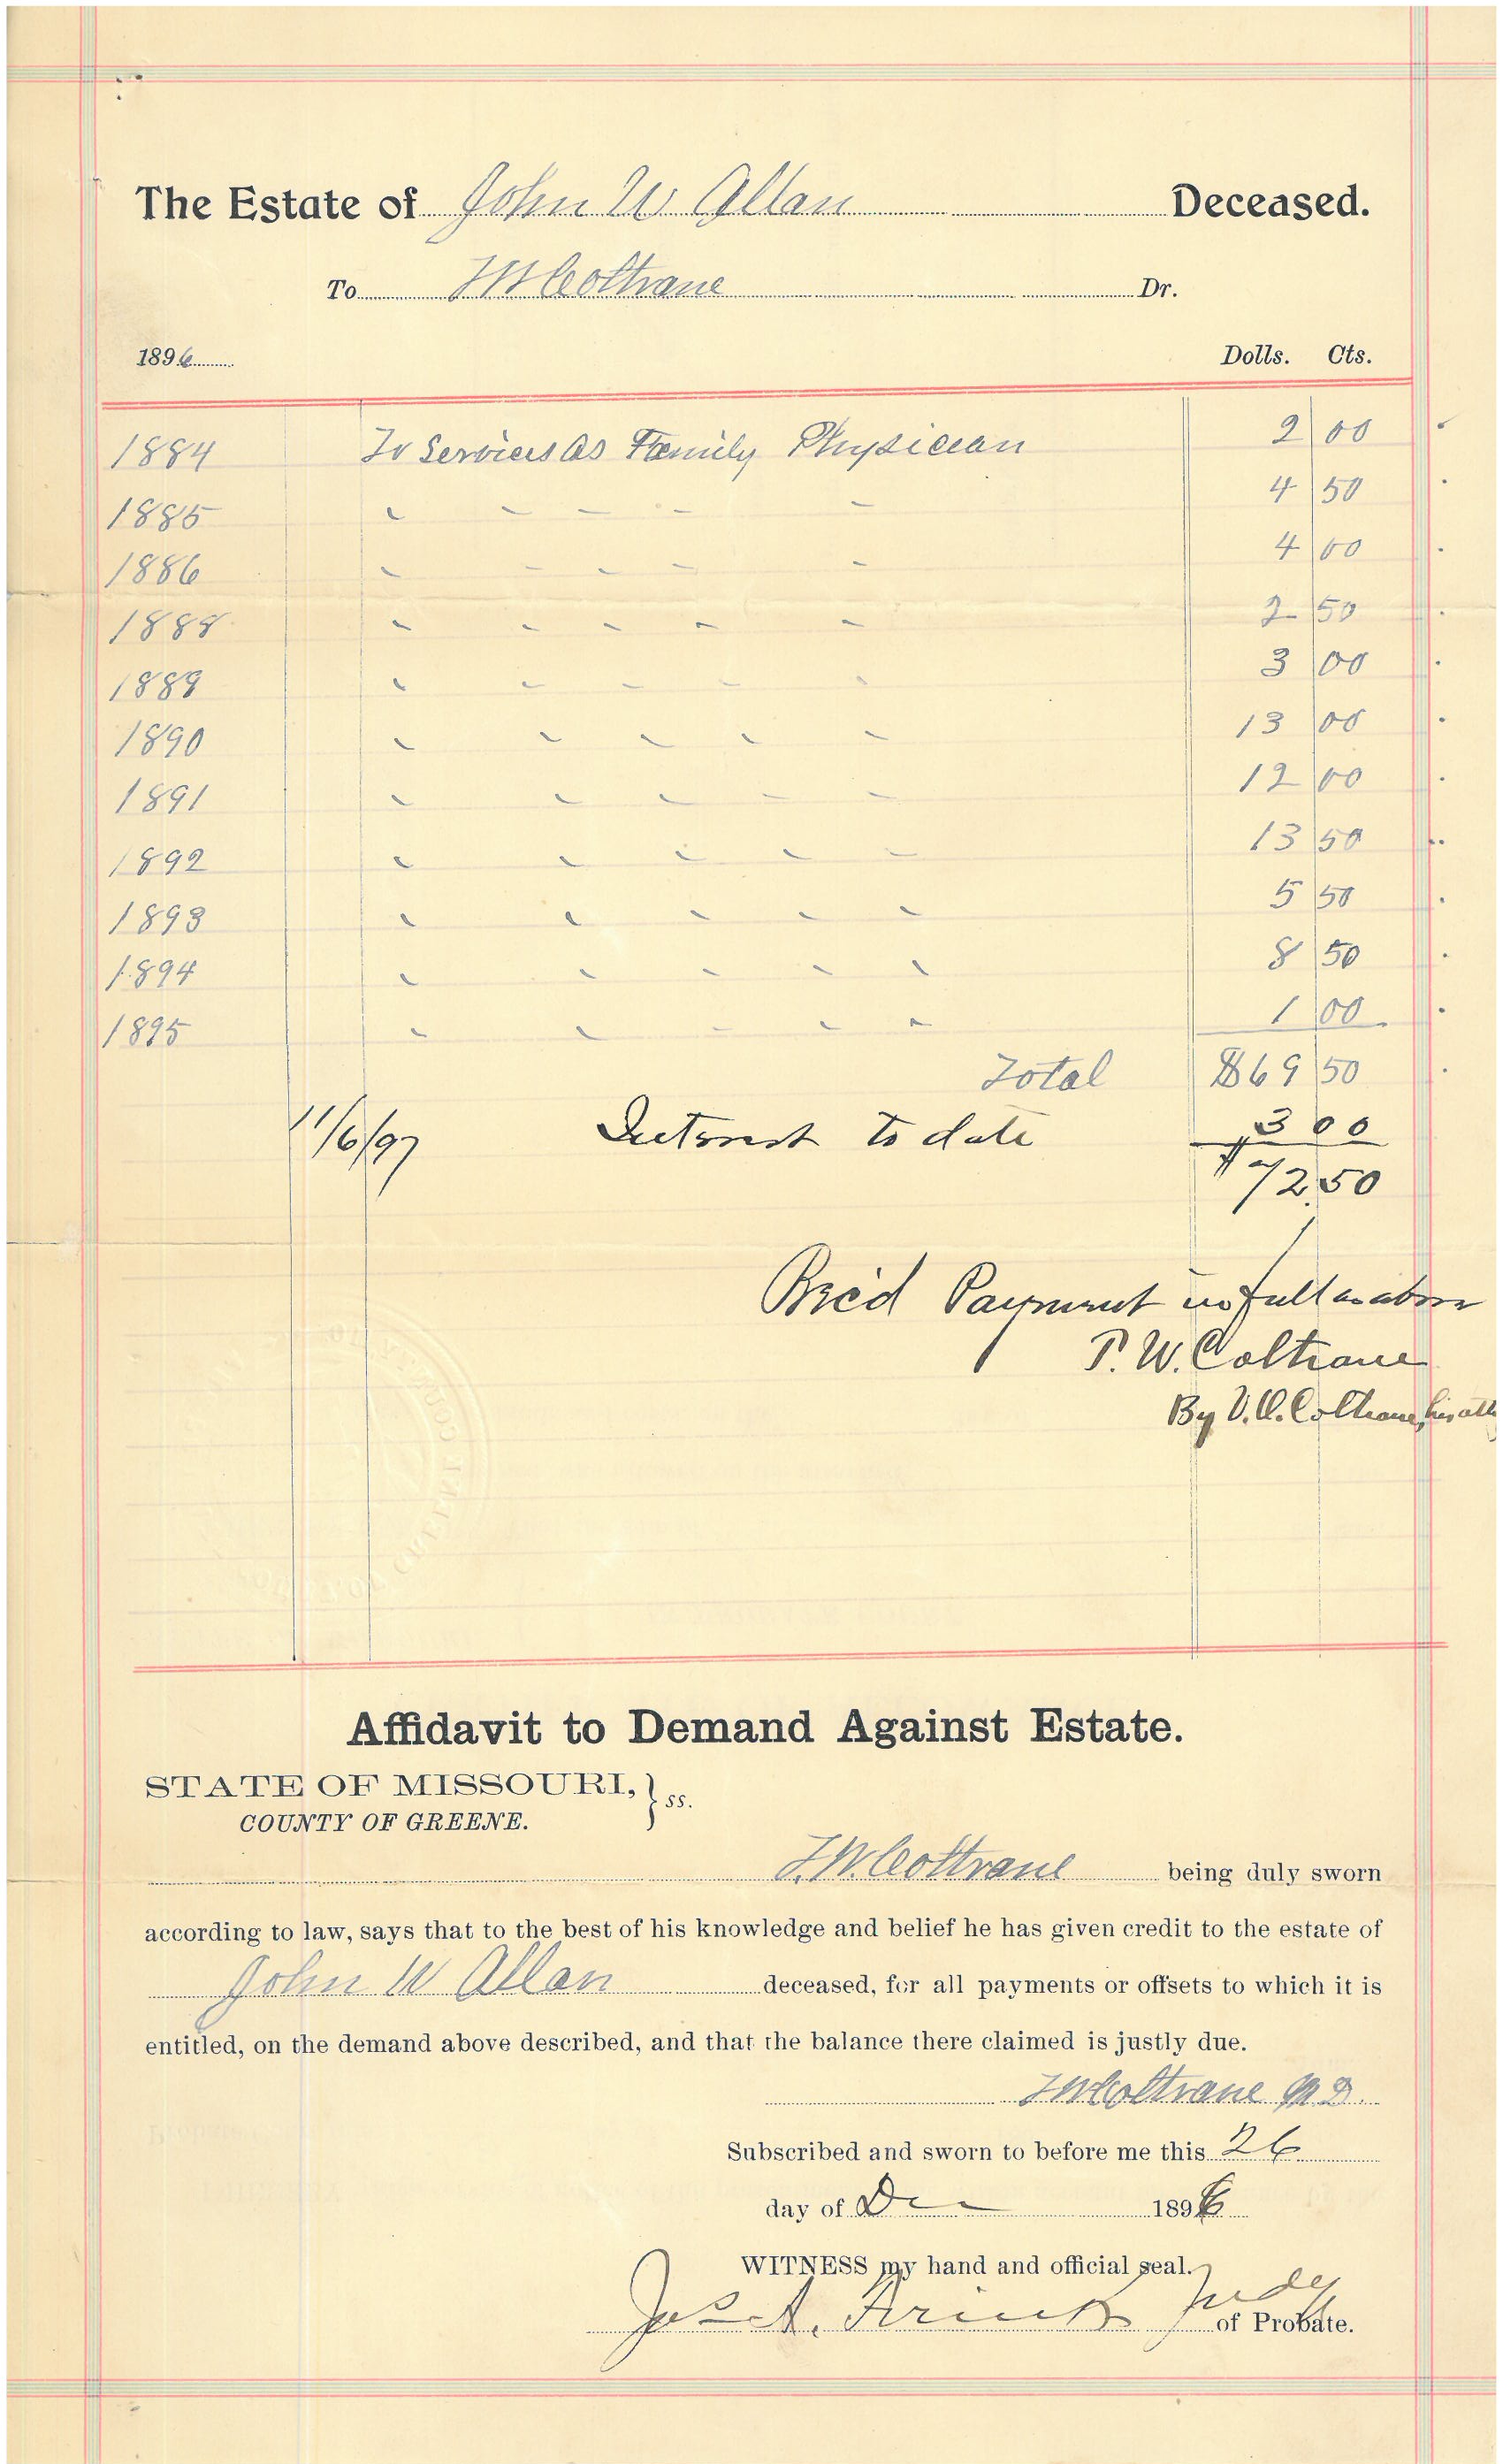 The Estate of John W Allan Deceased.
To J W Coltrane Dr.
1896 Dolls. Cts.
1884 To Services As Family Physician 2 00
1885 " " " " " 4 50
1886 " " " " " 4 00
1888 " " " " " 2 50
1889 " " " " " 3 00
1890 " " " " " 13 00
1891 " " " " " 12 00
1892 " " " " " 13 50
1893 " " " " " 5 50
1894 " " " " " 8 50
1895 " " " " " 1 00
Total $69 50
11/6/97 Interest to date 3 00
$72.50
Rec'd Payment in full as above
P. W. Coltrane
By V. A. Coltrane his atty
Affidavit to Demand Against Estate.
STATE OF MISSOURI, } ss.
COUNTY OF GREENE.
J. W. Coltrane being duly sworn
according to law, says that to the best of his knowledge and belief he has given credit to the estate of
John W Allan deceased, for all payments or offsets to which it is
entitled, on the demand above described, and that the balance there claimed is justly due.
J W Coltrane M D.
Subscribed and sworn to before me this 26
day of Dec 1896
WITNESS my hand and official seal.
Judg
of Probate.